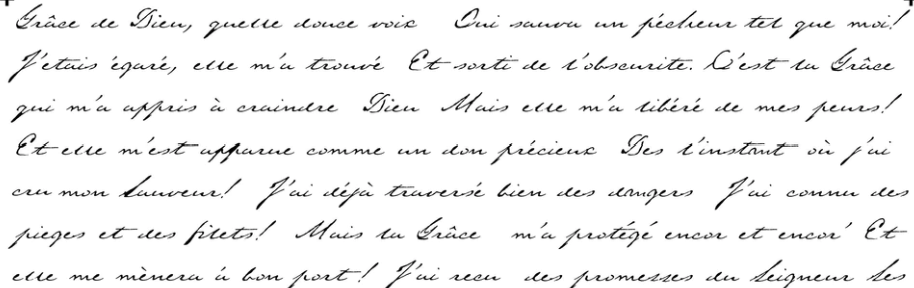 Grâce de Dieu, quelle douce voix Qui sauva un pécheur tel que moi!
J'etais égaré, elle m'a trouvé Et sorti de l'obscurite. C'est ta Grâce
qui m'a appris à craindre Dieu Mais elle m'a libéré de mes peurs!
Et elle m'est apparue comme un don précieux Des l'instant où j'ai
cru mon Sauveur! J'ai déjà traversé bien des dangers J'ai connu des
pieges et des filets! Mais ta Grâce m'a protégé encor et encor' Et
elle me mènera à bon port! J'ai recu des promesses du Seigneur Ses